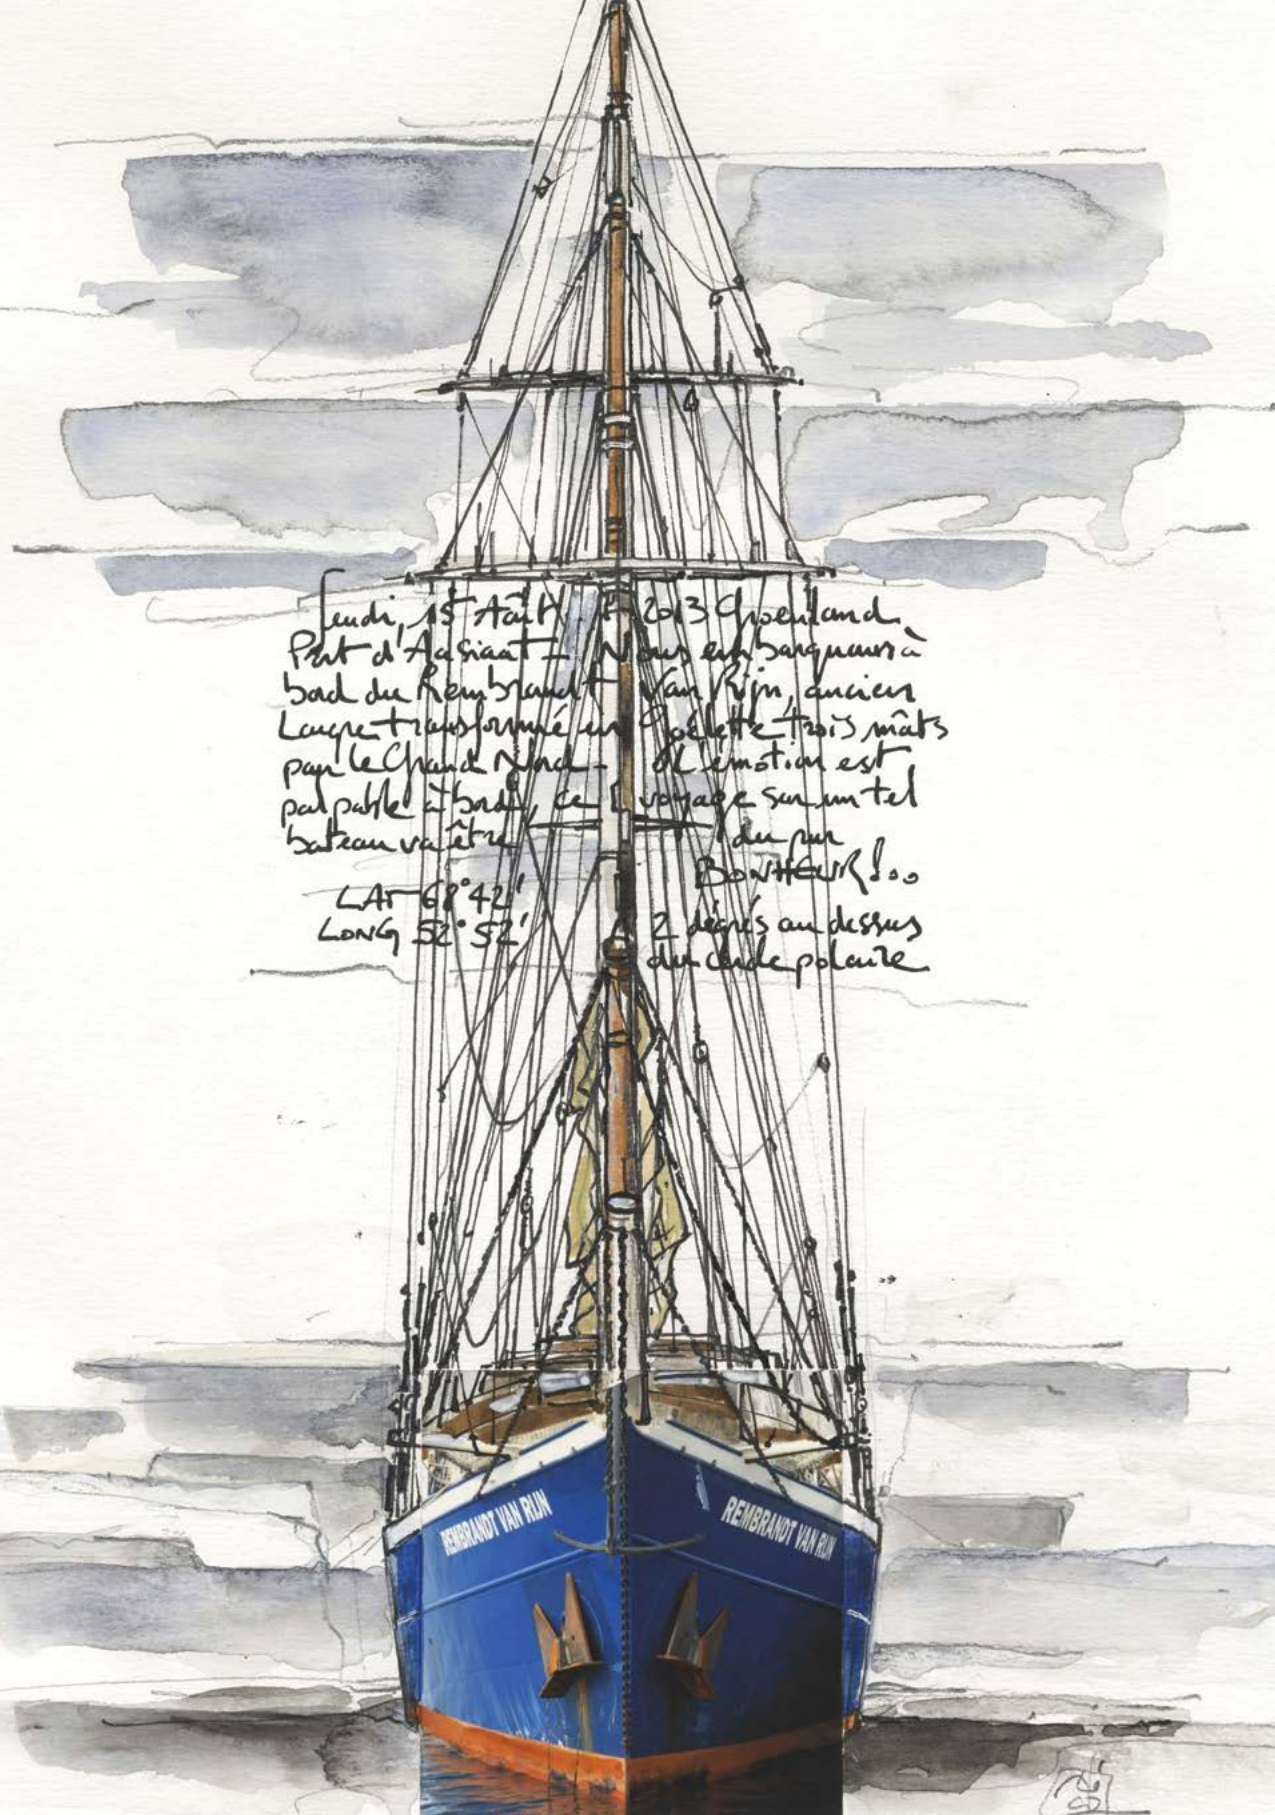 Jeudi, 15 Août 2013 Groenland
Port d'Aasiaat - Nous embarquons à
bord du Rembrandt Van Rijn, ancien
Lougre transformé en Goélette trois mâts
par le Grand Nord - L'émotion est
palpable à bord, ce voyage sur un tel
bateau va être du pur
BONHEUR!...
LAT 68°42'
LONG 52°52' à 2 degrés au dessus
du cercle polaire
REMBRANDT VAN RIJN
REMBRANDT VAN RIJN